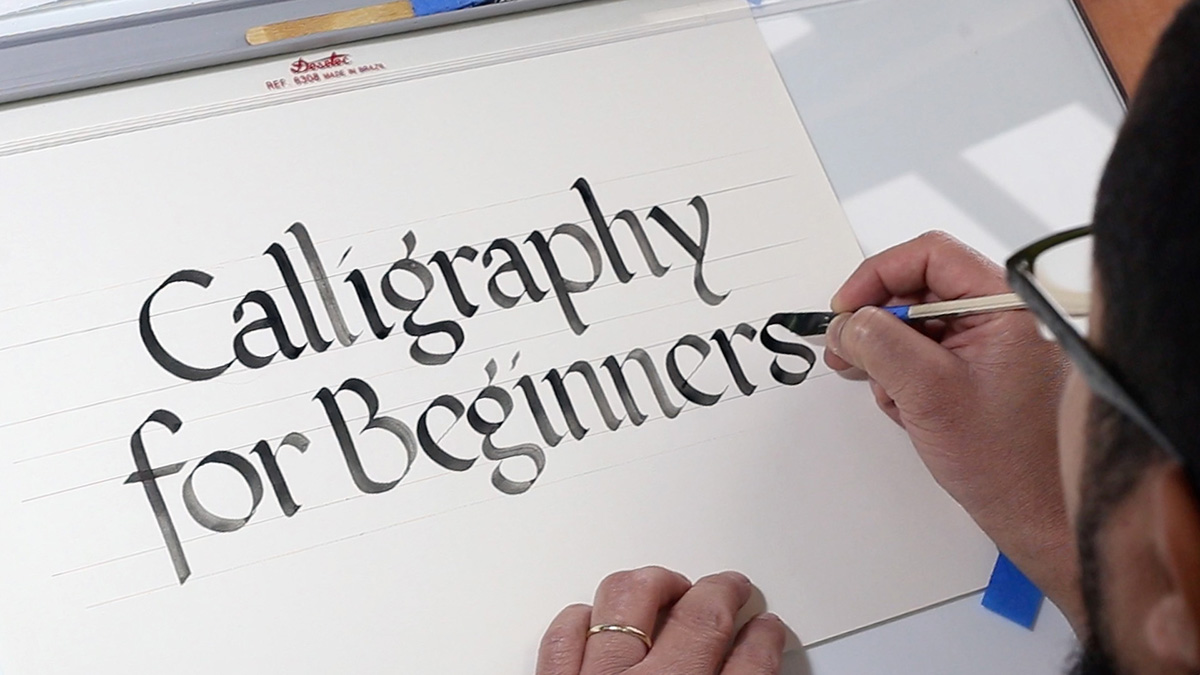 Desetec
REF. 6308 MADE IN BRAZIL
Calligraphy
for Beginners